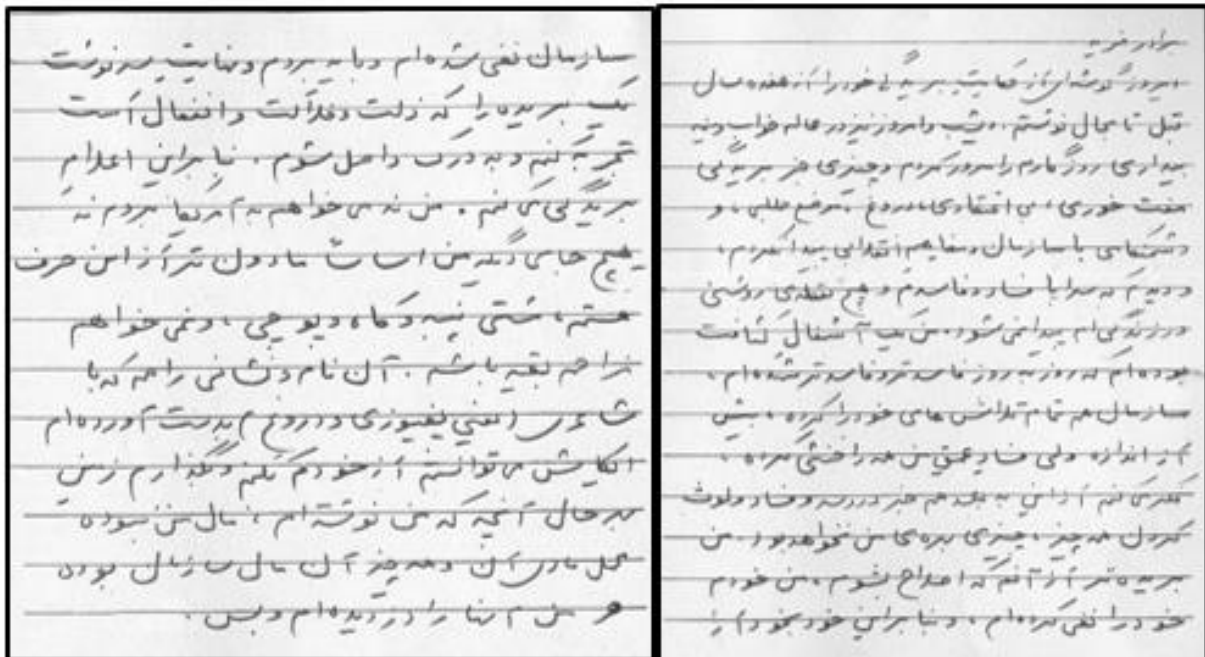 برادر فرید
امروز گوشه‌ای از کفایت بریدگی خود را از هفده سال
قبل تا بحال نوشتم، دیشب و امروز نیز در حاله خواب و نیه
بیداری روزگارم را مرور کردم و چیزی جز بریدگی
مفت خوری، بی اعتقادی، دروغ، فرصت طلبی، و
دشمنی با سازمان و مفاهیم انقلابی پیدا نکردم،
و دیدم که سراپا فساد و فاسدم و هیچ نقطه‌ی روشنی
در زندگی‌ام پیدا نمی‌شود. من یک آشغال کثافت
بوده‌ام که روز به روز فاسدتر و فاسدتر شده‌ام،
سازمان هم تمام تلاش های خود را کرده، بیش
از اندازه ولی فساد عمیق من همه را خنثی کرده،
فکر می کنم از این به بعد هم جز دردسر و فساد و لوث
کردن همه چیز، چیزی برای من نخواهد بود. من
بریده تر از آنم که اصلاح بشوم، من خودم
خود را نفی کرده‌ام، و بنابراین خود بخود از
سازمان نفی شده‌ام و باید بروم و نهایت سرنوشت
یک بریده را که ذلت و فلاکت و انفعال است
تجربه کنم و به درک واصل شوم. بنابراین اعلام
بریدگی می کنم. من نه می خواهم به آمریکا بروم نه
هیچ جای دیگه من اساساً مادون تر از این حرف
هستم، مشتی پنبه و کاه و یونجه، و نمی خواهم
مزاحم بقیه باشم. آن نام و نشانی را هم که با
شاعری (یعنی پفیوزی و دروغ) بدست آورده‌ام
ایکاش می توانستم از خودم بکنم و بگذارم زمین
بهرحال آنچه که من نوشته‌ام، مال من نبوده
محل مادی آن و همه چیز آن مال سازمان بوده
و من آنها را دزدیده‌ام و بس.